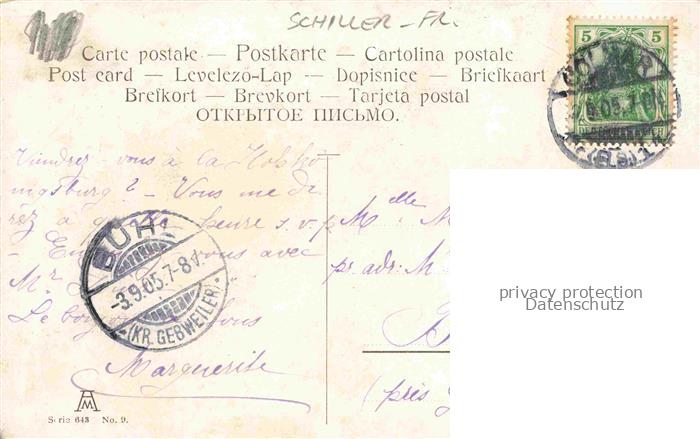 SCHILLER-FR.
Carte postale — Postkarte — Cartolina postale
Post card — Levelező-Lap — Dopisnice — Briefkaart
Brefkort — Brevkort — Tarjeta postal
ОТКРЫТОЕ ПИСЬМО.
5 5
3.9.05.7-8N.
(ELS.) 1
Viendrez-vous à la Hohkö
nigsburg? - Vous me di
rez à quelle heure s.v.p
vous avec
Mr
Le vous
Marguerite
BÜH
-3.9.05.7-8N.
(KR. GEBWEILER)
Melle M
pr adr: M
B
(près
privacy protection
Datenschutz
AM
Serie 643 No. 9.